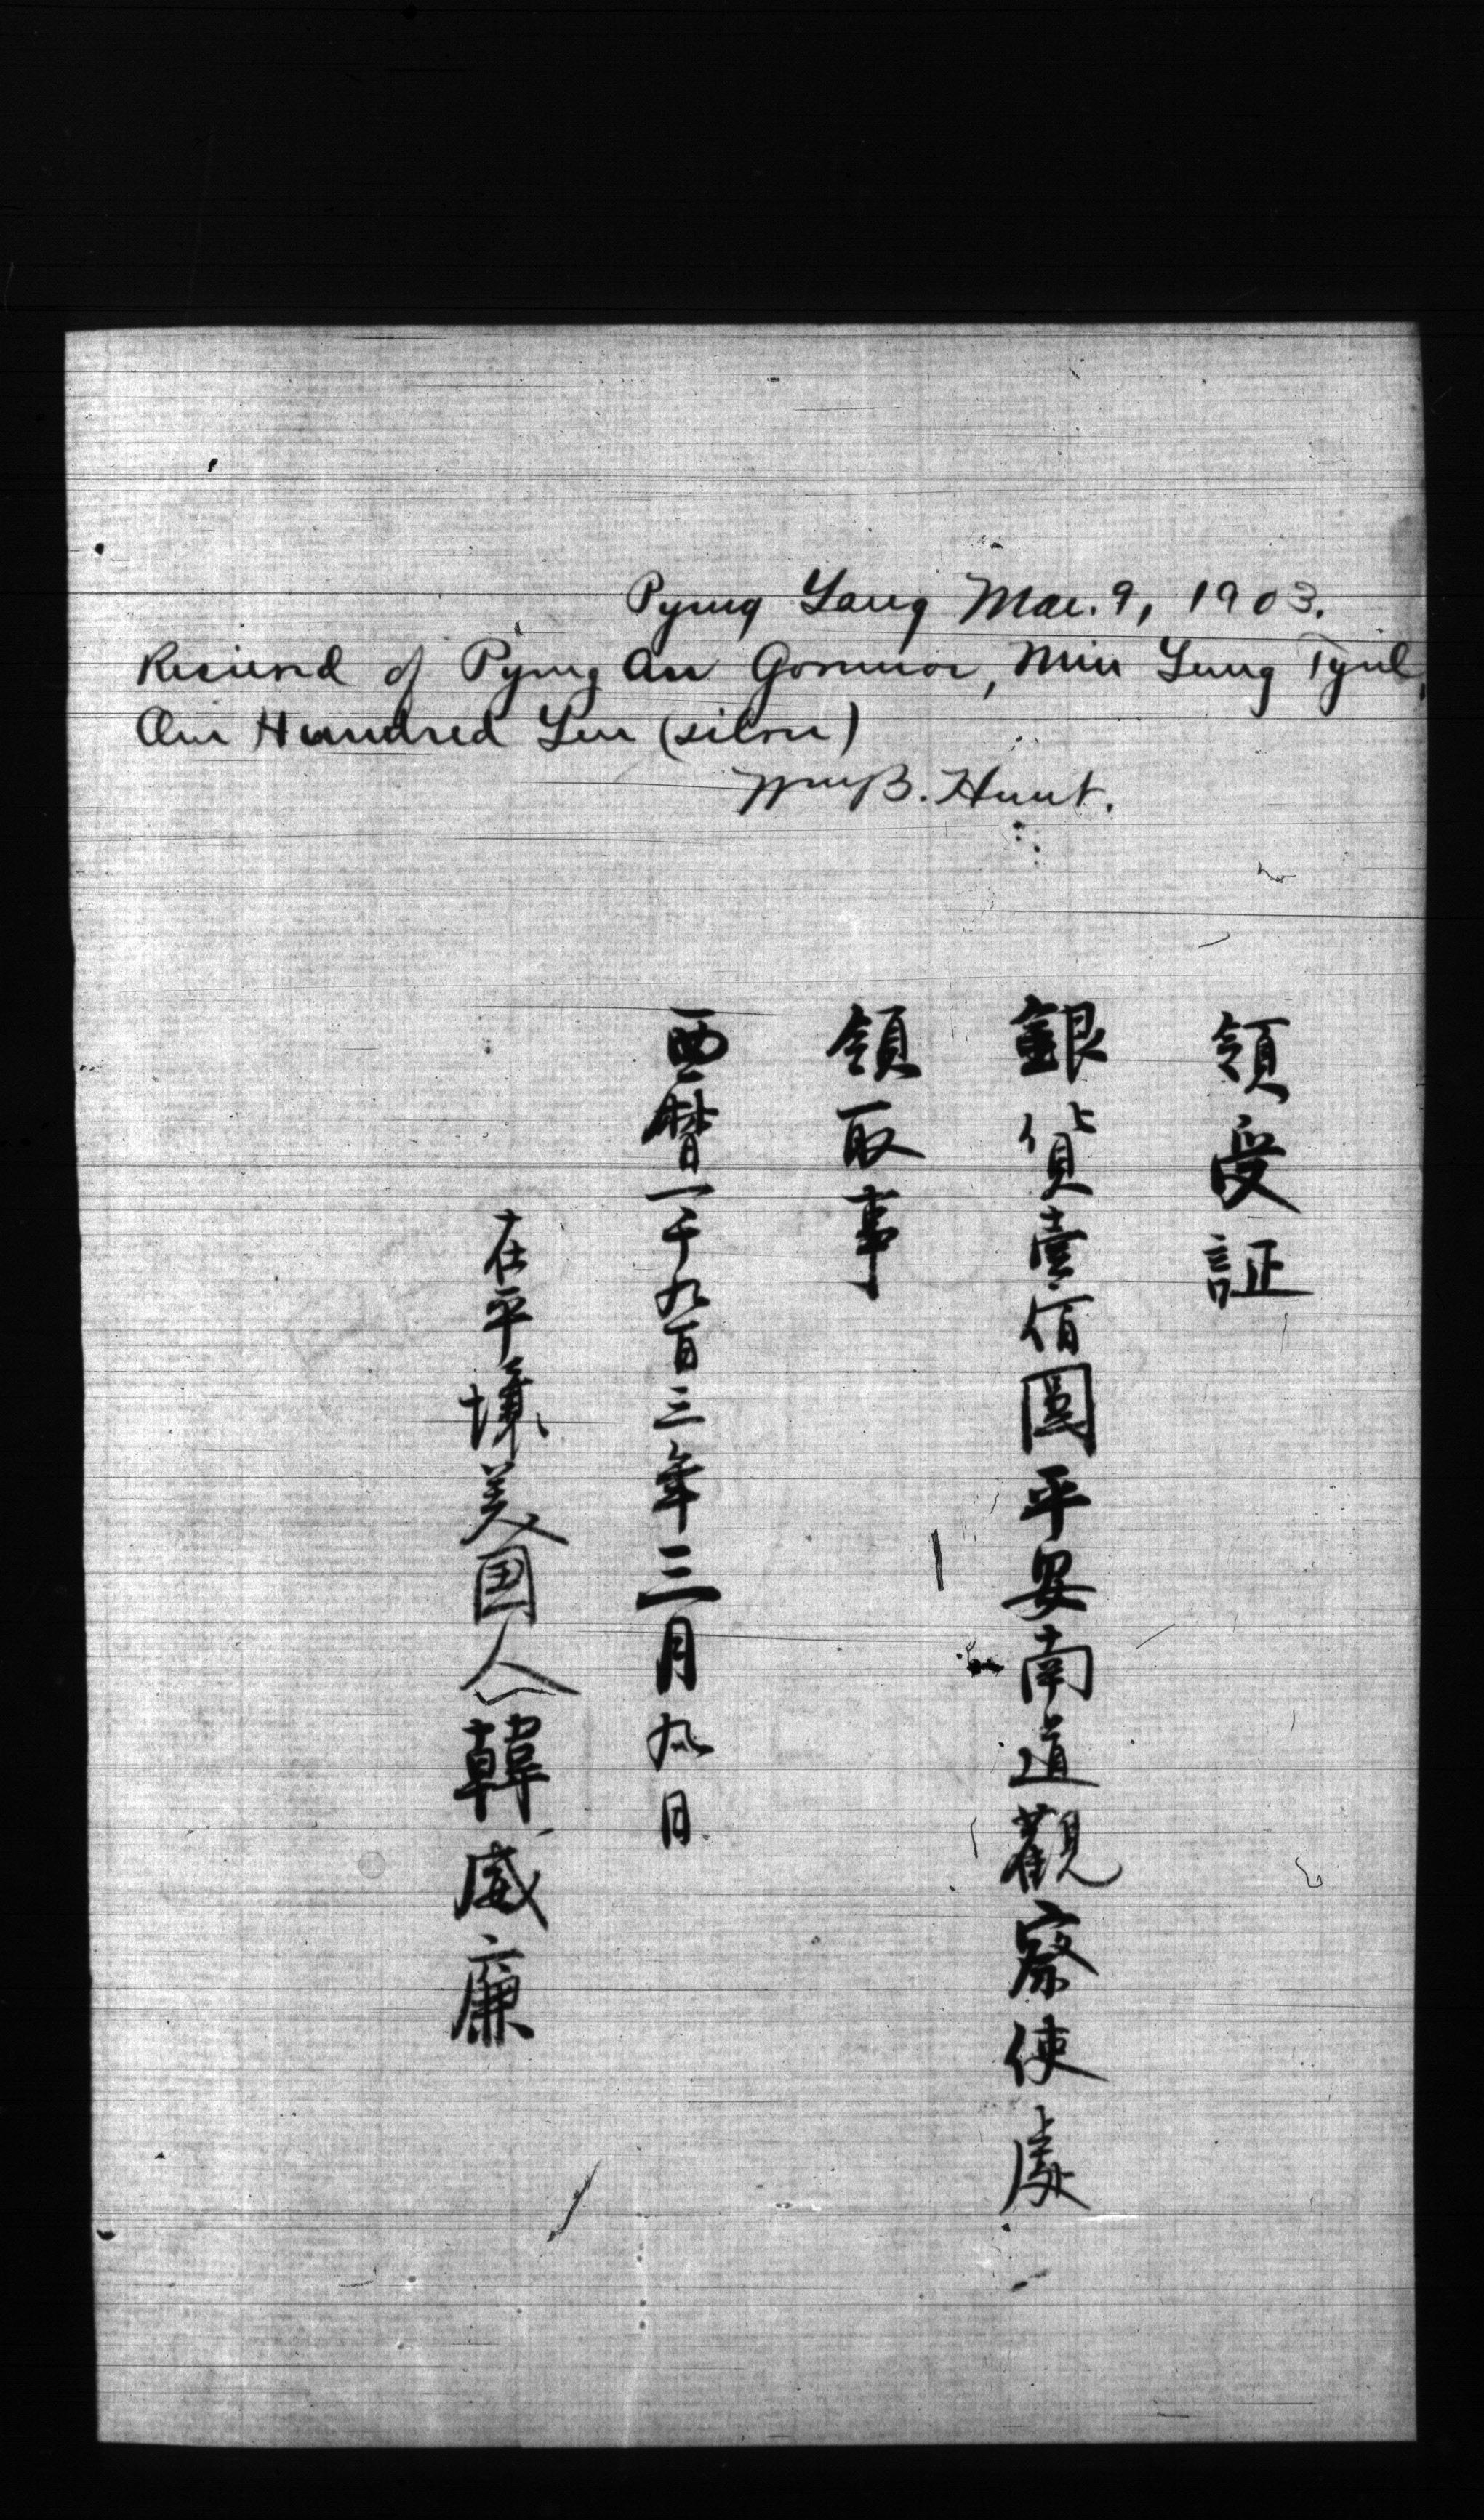 Pyeng Yang Mar. 9, 1903.
Received of Pyeng An Governor, Min Yung Tyul,
One Hundred Yen (silver)
Wm B. Hunt.
領受証
銀貨壹佰圓平安南道觀察使處
領取事
西曆一千九百三年三月九日
在平壤美国人韓威廉